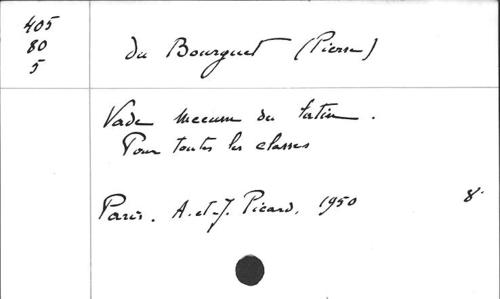 405
80
5
du Bourguet (Pierre)
Vade mecum du latin.
Pour toutes les classes
Paris. A. et J. Picard, 1950 8°